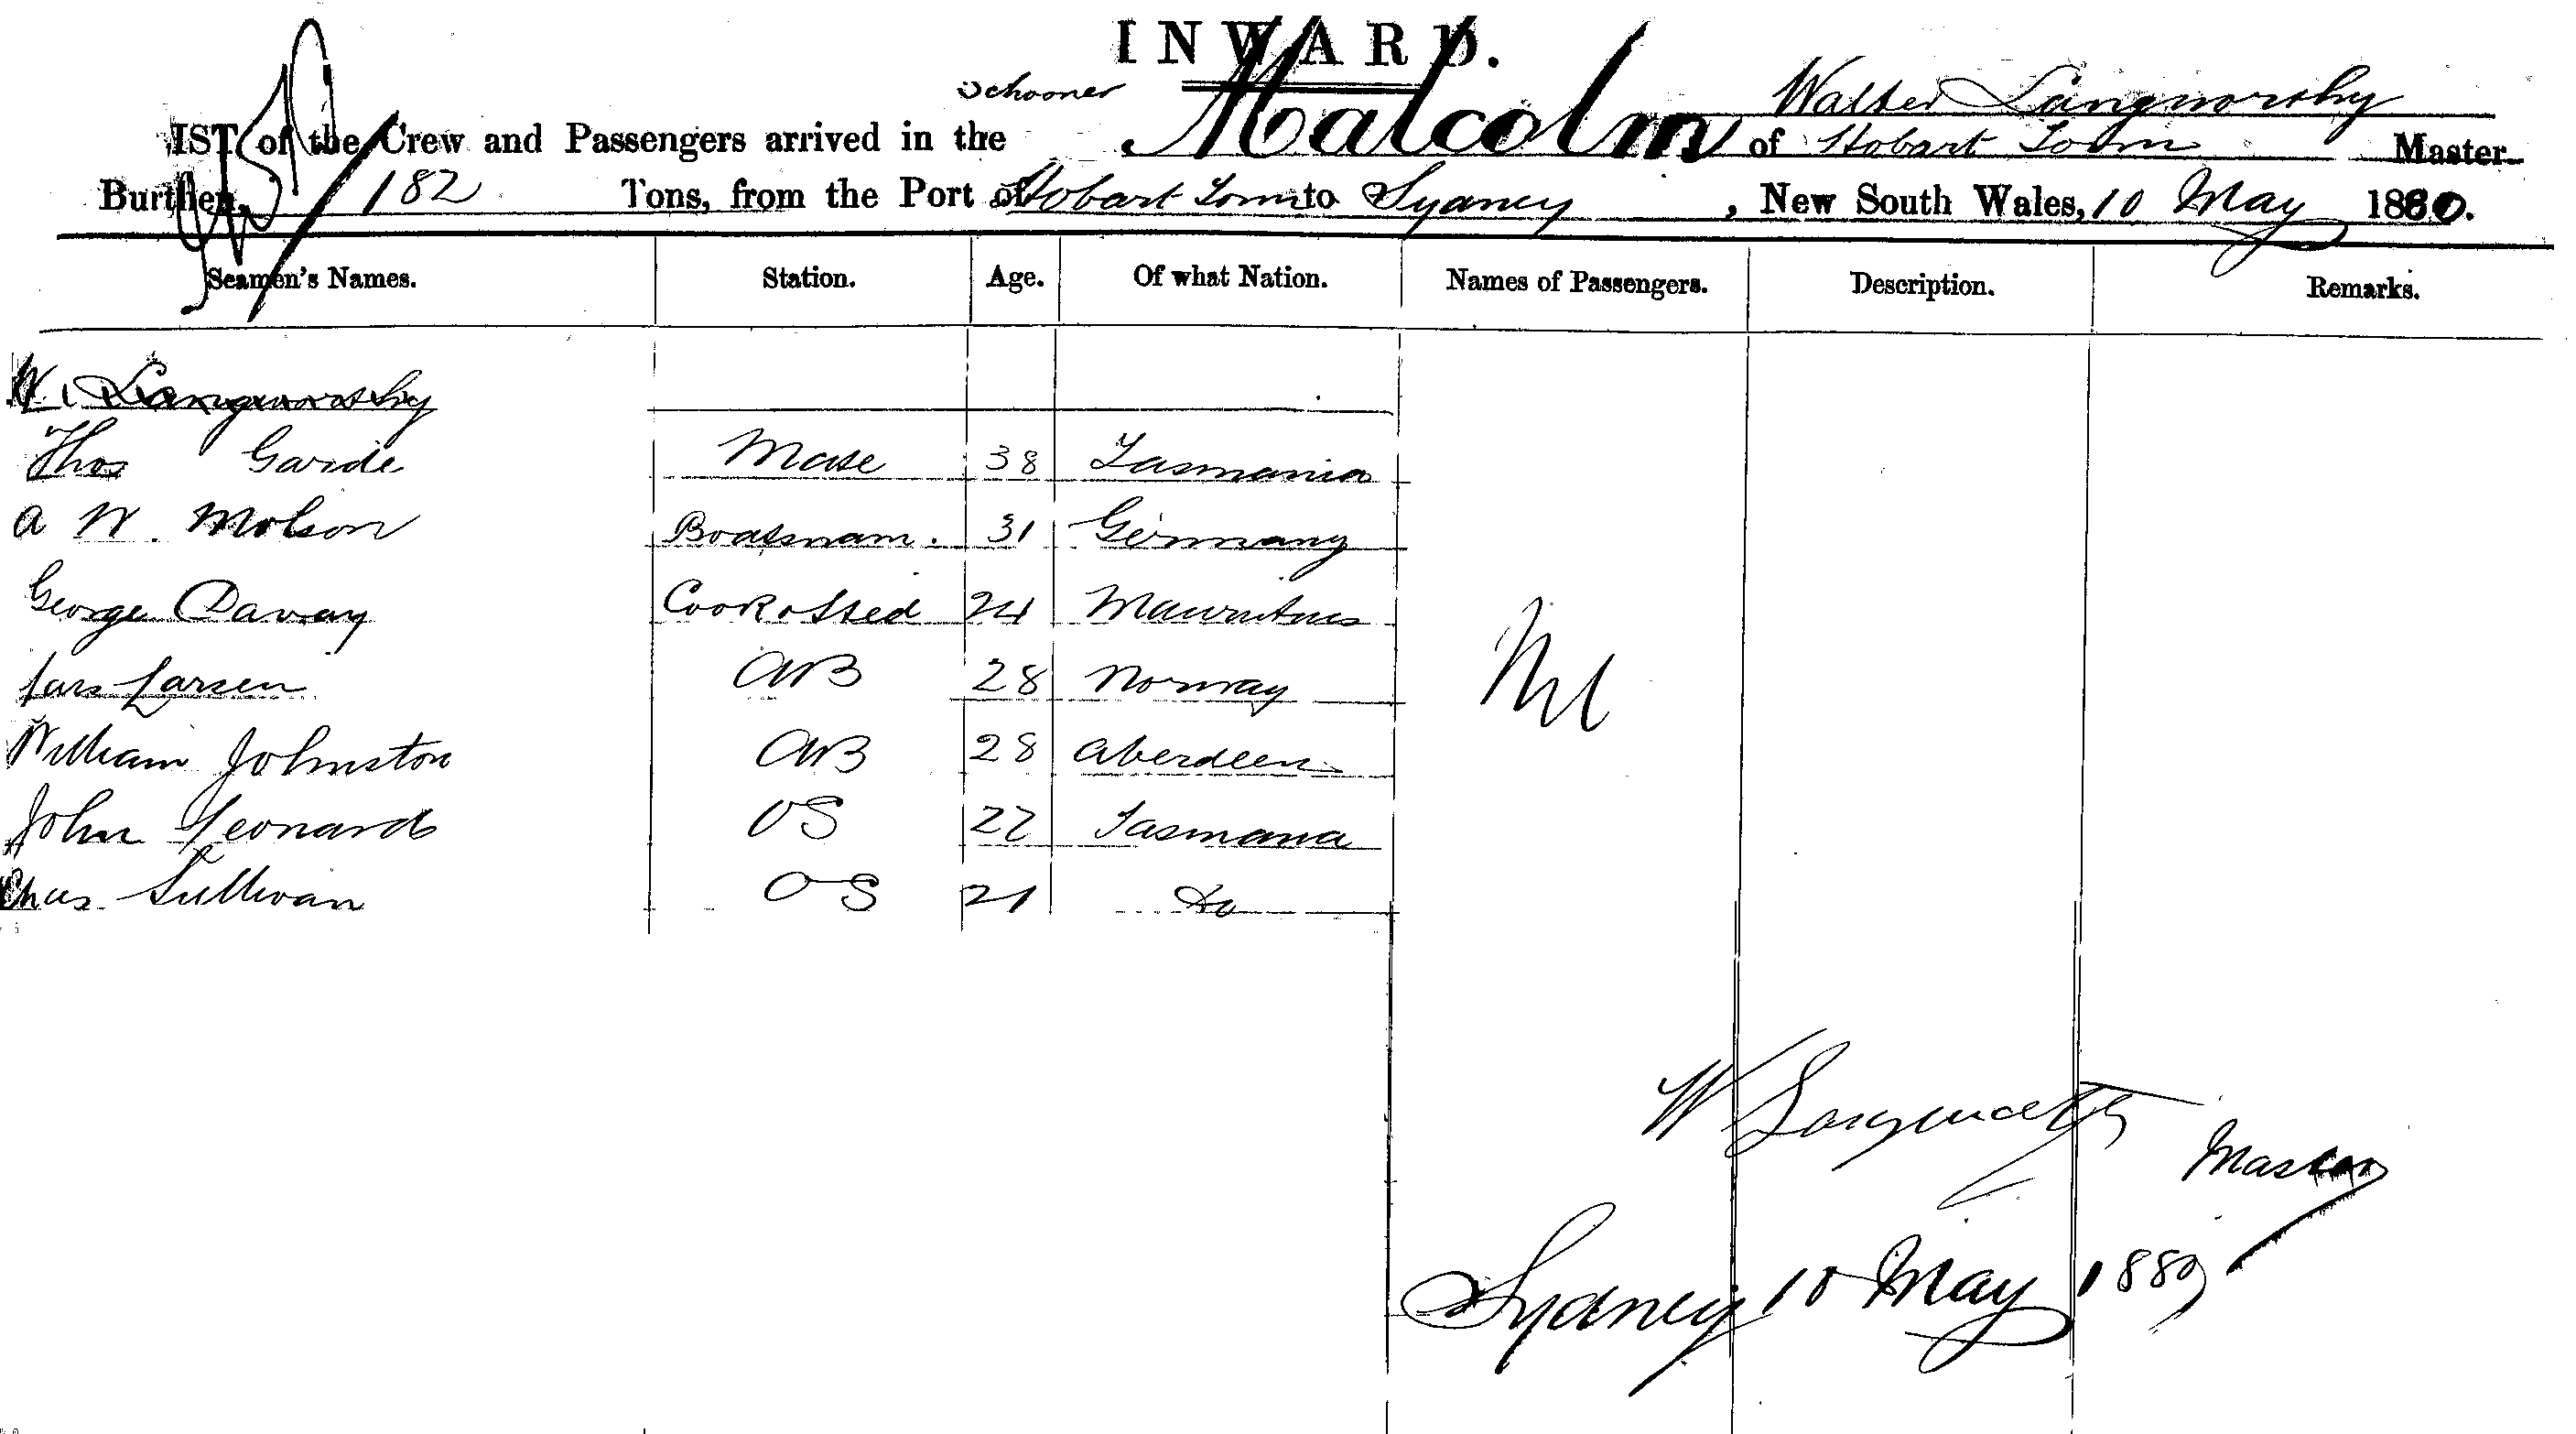 INWARD.
Schooner Walter Langworthy
LIST of the Crew and Passengers arrived in the Malcolm of Hobart Town Master
Burthen, 182 Tons, from the Port of Hobart Town to Sydney, New South Wales, 10 May 1880.
Seamen's Names. Station. Age. Of what Nation. Names of Passengers. Description. Remarks.
W. Langworthy
Thos Garde Mate 38 Tasmania
A W. Molson Boatsnam. 31 Germany
George Davay Cook & Sted 24 Mauritius
Lars Larsen AB 28 Norway Nil
William Johnston AB 28 Aberdeen
John Leonard OS 22 Tasmania
Chas Sullivan OS 21 Do
W Langworthy
Master
Sydney 10 May 1880